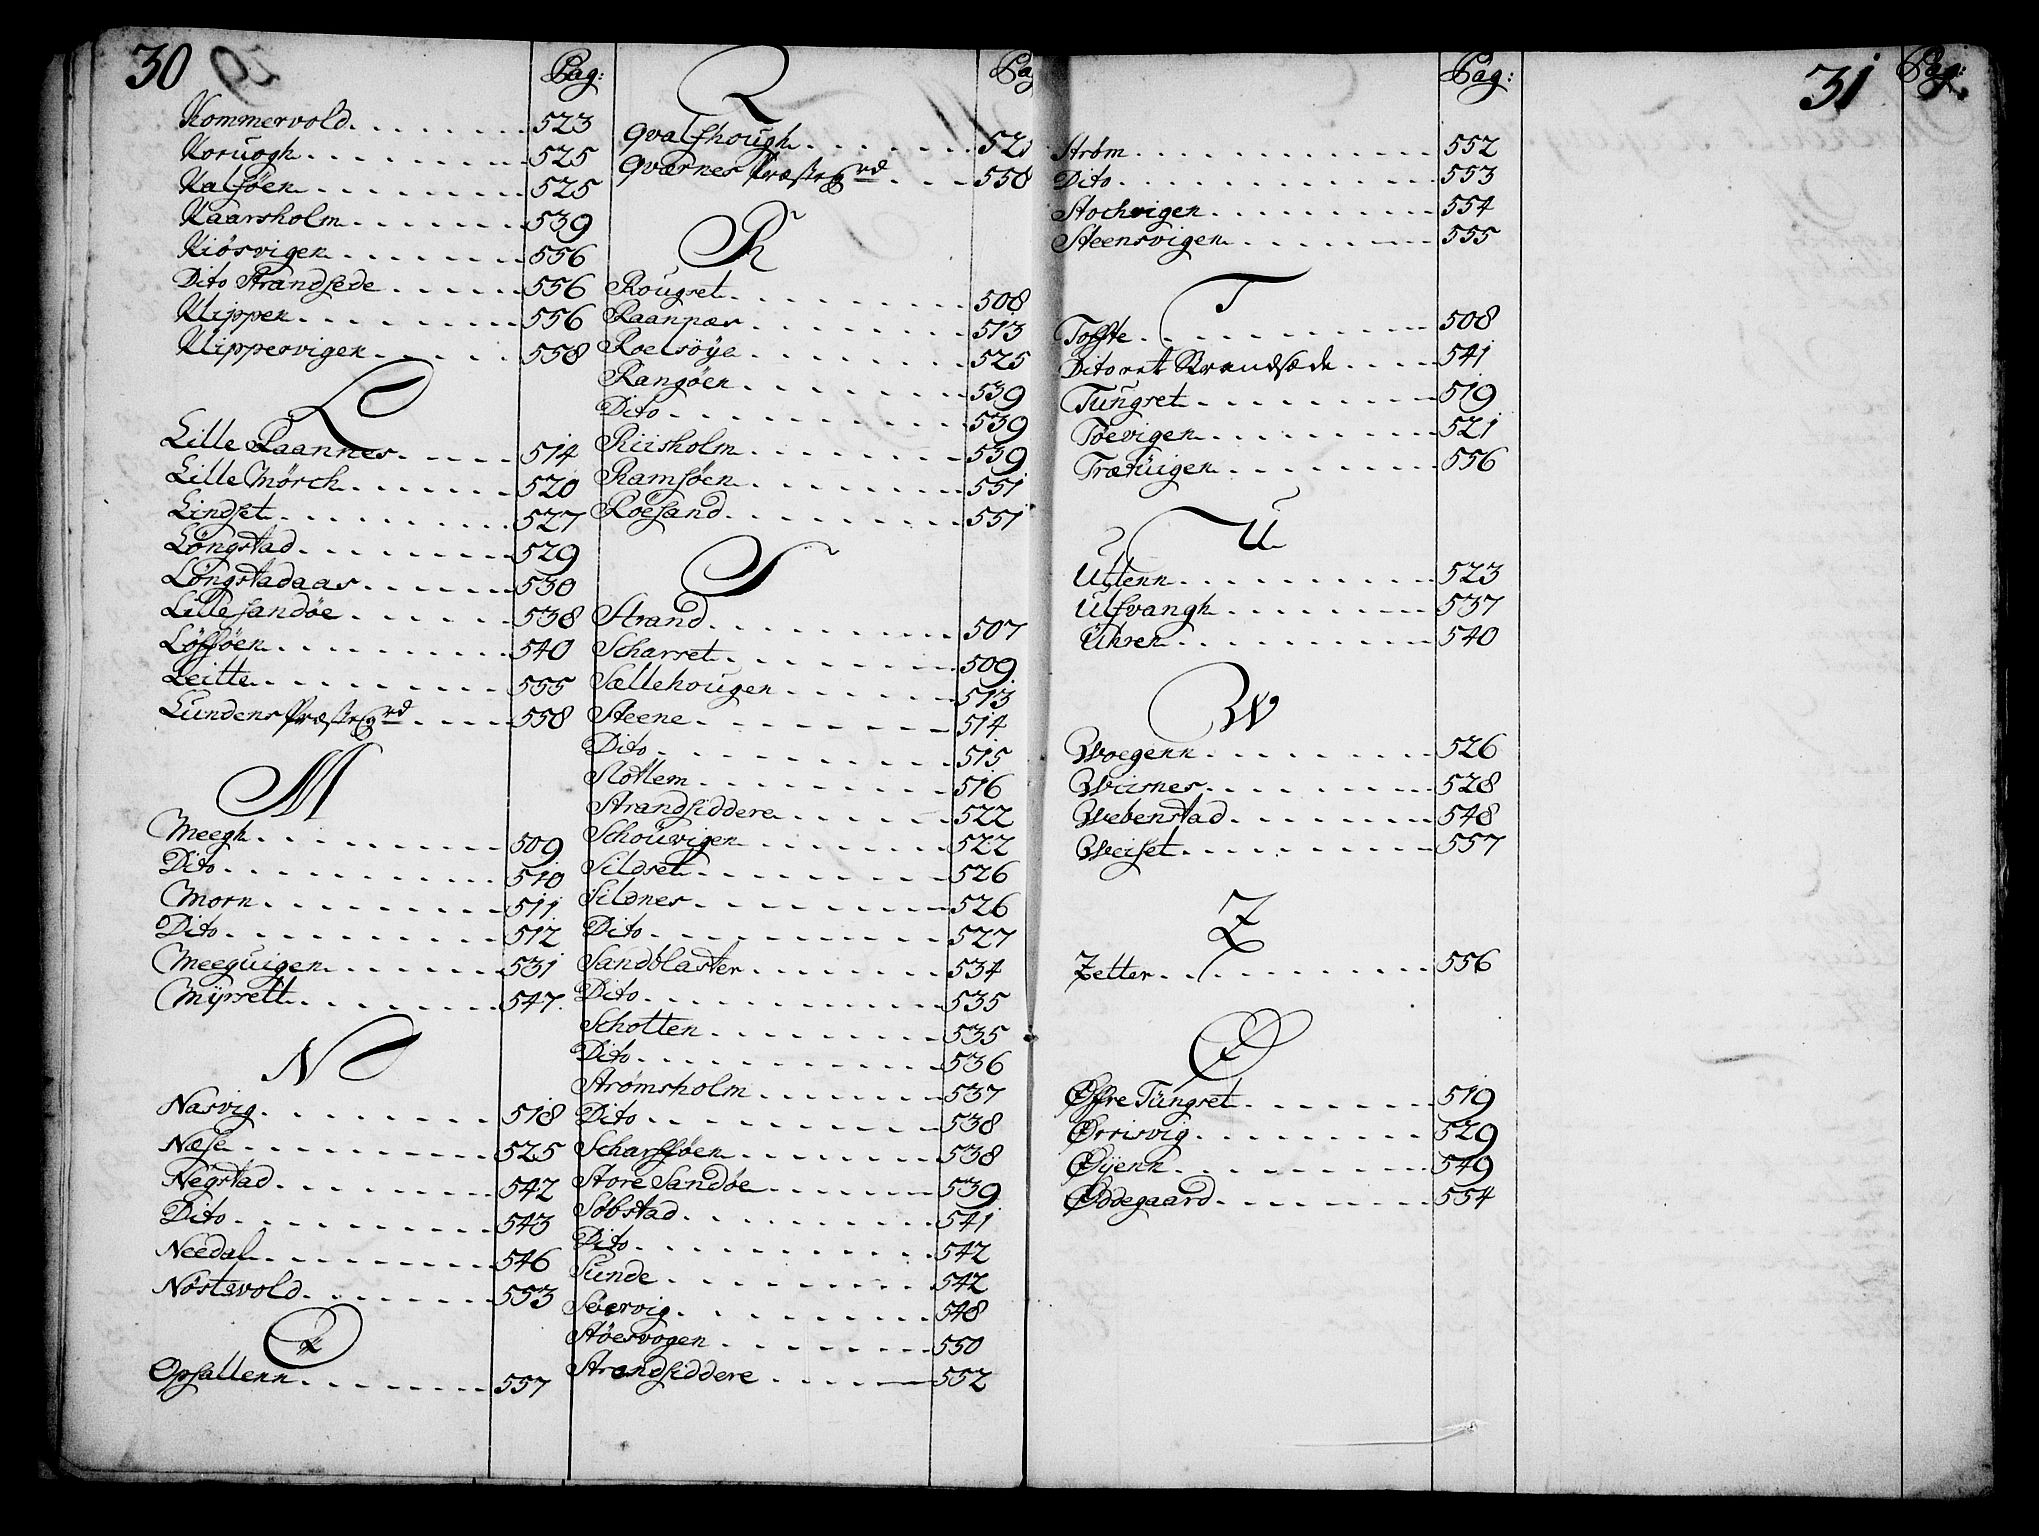 30
Pag:
Kommervold 523
Koruogh 525
Kalsöen 525
Kaarsholm 539
Kiösvigen 556
Dito Strandsede 556
Klippen 556
Klippervigen 558
L
Lille Raannes 514
Lille Mörch 520
Lindset 527
Löngstad 529
Löngstadaas 530
Lille sandöe 538
Löfsöen 540
Leitte 555
Lundens Præste Grd 558
M
Meegh 509
Dito 510
Morn 511
Dito 512
Meeguigen 531
Myrsett 547
N
Nasvig 518
Næse 525
Negstad 542
Dito 543
Needal 546
Nöstevold 553
O
Opsallenn 557
Q
Qvalshough
Qværnes Præste Grd 558
R
Rougset 508
Raannæs 513
Roelsöye 525
Rangöen 539
Dito 539
Riisholm 539
Ramsöen 551
Roesand 551
S
Strand 507
Scharset 509
Sællehougen 513
Steene 514
Dito 515
Slottem 516
Strandsiddere 522
Schouvigen 522
Sildset 526
Sildnes 526
Dito 527
Sandblaster 534
Dito 535
Schotten 535
Dito 536
Strømsholm 537
Dito 538
Scharssöen 538
Store Sandöe 539
Söbstad 541
Dito 542
Sunde 542
Söervig 548
Stöesvogen 550
Strandsiddere 552
31
Pag:
Pag:
Strøm 552
Dito 553
Stochvigen 554
Steensvigen 555
T
Toffte 508
Dito ret Strandsæde 541
Tungset 519
Töevigen 521
Trætuigen 556
U
Utlenn 523
Ulsvangh 537
Uhren 540
W
Woegenn 526
Wiisnes 528
Webenstad 548
Weiset 557
Z
Zetter 556
Ø
Øfre Tüngset 519
Ørrisvig 529
Øyenn 549
Øddegaard 554